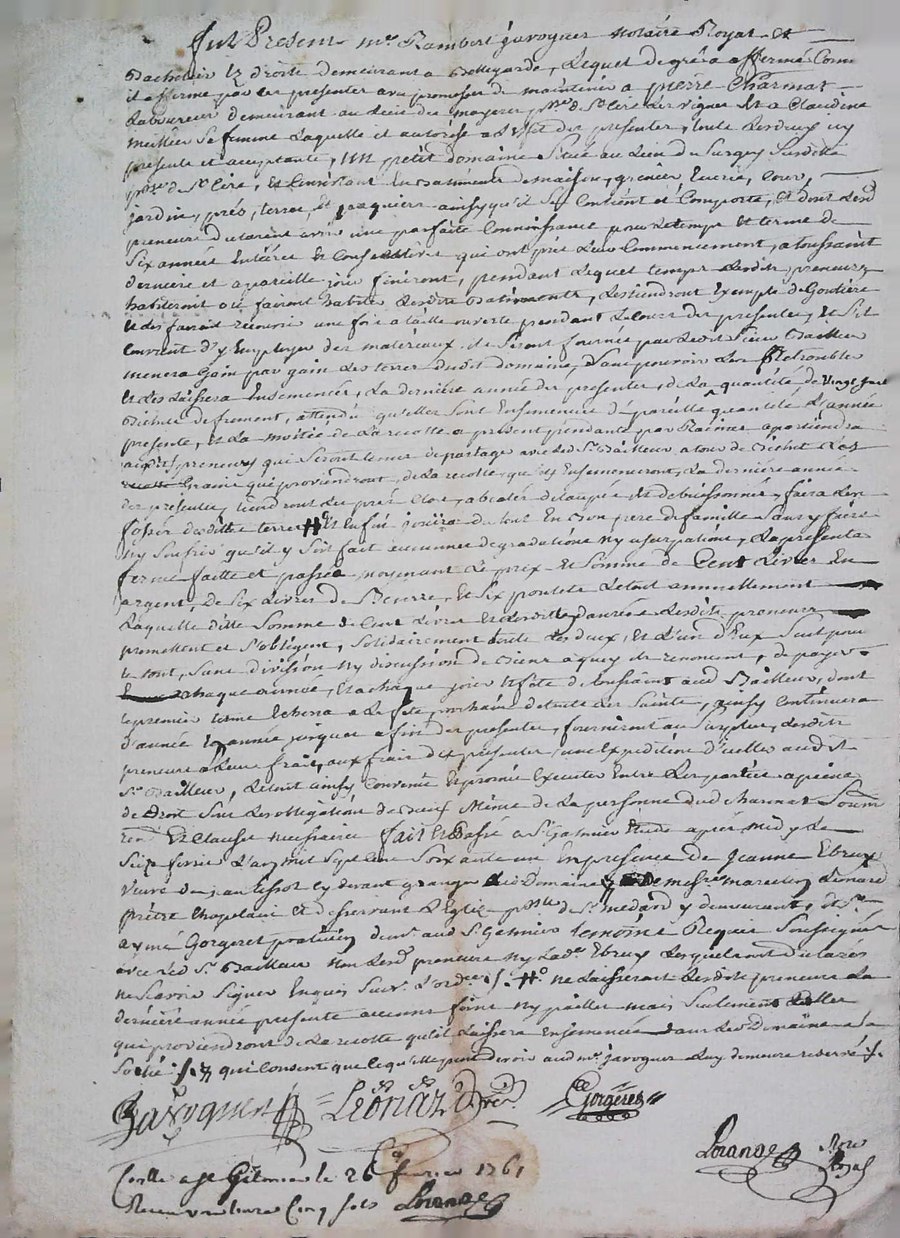 fut Present me. Rambert javogues notaire Royal et
Bachelier Ez droits demeurant a Bellegarde, Lequel de gré a affermé Comme
il afferme par les presentes avec promesse de maintenir a pierre Charmat
Laboureur demeurant au lieu des mayeres psse. de St Cire Les Vignes Et a Claudine
meillier Sa femme Laquelle et autorisé a L'effet des presentes, touts Lesdeux icy
presents et acceptants, un petit domaine Situé au Lieu de Surgey Susditte
psse. de St Cire, Et Consistant En batiments de maison, grenier Ecurie, Cour,
jardin, prés, terres, et paquiers ainsy qu'il Se Contient et Comporte, Et dont Lesd
preneurs declarent avoir une parfaite Connoissance pour Letemps et terme de
Six années Entieres Et Consecutives qui ont pris Leur Commencement, a toussaint
derniere et a pareille jour finiront, pendant Lequel temps Lesdits preneurs
habiteront ou fairont habiter Lesdits batiments, Lestiendront Exempts de Goutiere
et des fairoit recouvrir une fois a taille ouverte pendant Le Cours des presentes, Et S'il
Convient d'y Employer des materiaux ils Seront fournis par Ledit Sieur Bailleur
menera Gain par gain Les terres dudit domaine, Sans pouvoir Les Retroubler
et Les Laissera Ensemencées, La derniere année des presentes, de La quantité de Vingt huit
Bichets de froment, attendu qu'elles Sont Ensemencées d'pareille quantité L'année
presente, et La moitié de La recolte a present pendante par Racines apartiendra
auxdits preneurs qui Seront tenus de partager avec Led Sr Bailleur a tour de Bichet Les
grains qui proviendront de La recolte, qu'ils Ensemenceront, La derniere année
des presentes, tiendront Les prés Clos, a batés detaupés Et debuissonnés, faira Les
fossés desdittes terres Et Enfin jouira du tout En bon pere de famille Sans y faire
ny Souffrir qu'il y Soit fait aucunnes degradations ny usurpations, La presente
ferme faitte et passée moyenant Le prix Et Somme de Cent Livres En
argent, De Six Livres de Beurre, Et Six poulets Letout annuellement
Laquelle ditte Somme de Cent Livres Et Lesdittes Denrées Lesdits preneurs
promettent et S'obligent, Solidairement touts Lesdeux, Et L'un d'Eux Seul pour
le tout, Sans division ny discussion de biens a quoy ils renoncent, de payer
chaque année, Et a chaque jour Et fête de toussaint aud Sr Bailleur, dont
Le premier terme Echera a La fête prochaine de touts Les Saints, ainsy Continuera
d'année En année jusqua a fin des presentes, fourniront au Surplus, Lesdits
preneurs a Leurs frais, aux fraix des presentes, une Expedition d'icelles audit
Sr Bailleur, Letout ainsy Convenu Et promis Executer Entre Les parties a peine
de Droit Sous Les obligations de biens Même de La personne dud Charmat Soum
ren Et Clauses necessaires fait Et Passé a St Galmier Etude apres midy Le
Seize fevrier L'an mil Sept Cent Soixante un En presence de Jeanne Ebreux
veuve de jean Cy devant granger dud Domaine, de messire marcellin Léonard
prêtre Chapelain et desservant L'Eglise psse. de St Medard y demeurant, et Sr
aymé Gorgeret praticien demt. aud St Galmier temoins Requis Soussignés
avec Led Sr. Bailleur non Lesd preneurs ny Lade Ebreux Lesquels ont declarés
ne Savoir Signer Enquis Suivt. L'ordce ./. ne Laisseront Lesdits preneurs La
derniere année presente aucuns foins ny pailles mais Seulement Celles
qui proviendront de La recolte qu'il Laissera Ensemencée dans Led Domaine a Sa
Sortie ./. qui Consent que Ce qu'elle peut devoir aud me. javogues Luy demeure reservé ./.
Javogues Leónard Gorgeret
Lorange Nore Royal
Conlle a St Galmier le 26 fevrier 1761
Receu Cinq sols Lorange